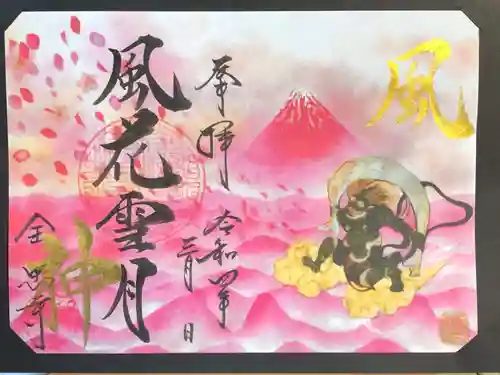 風
奉拝
令和四年
三月 日
風花雪月
神
金思寺